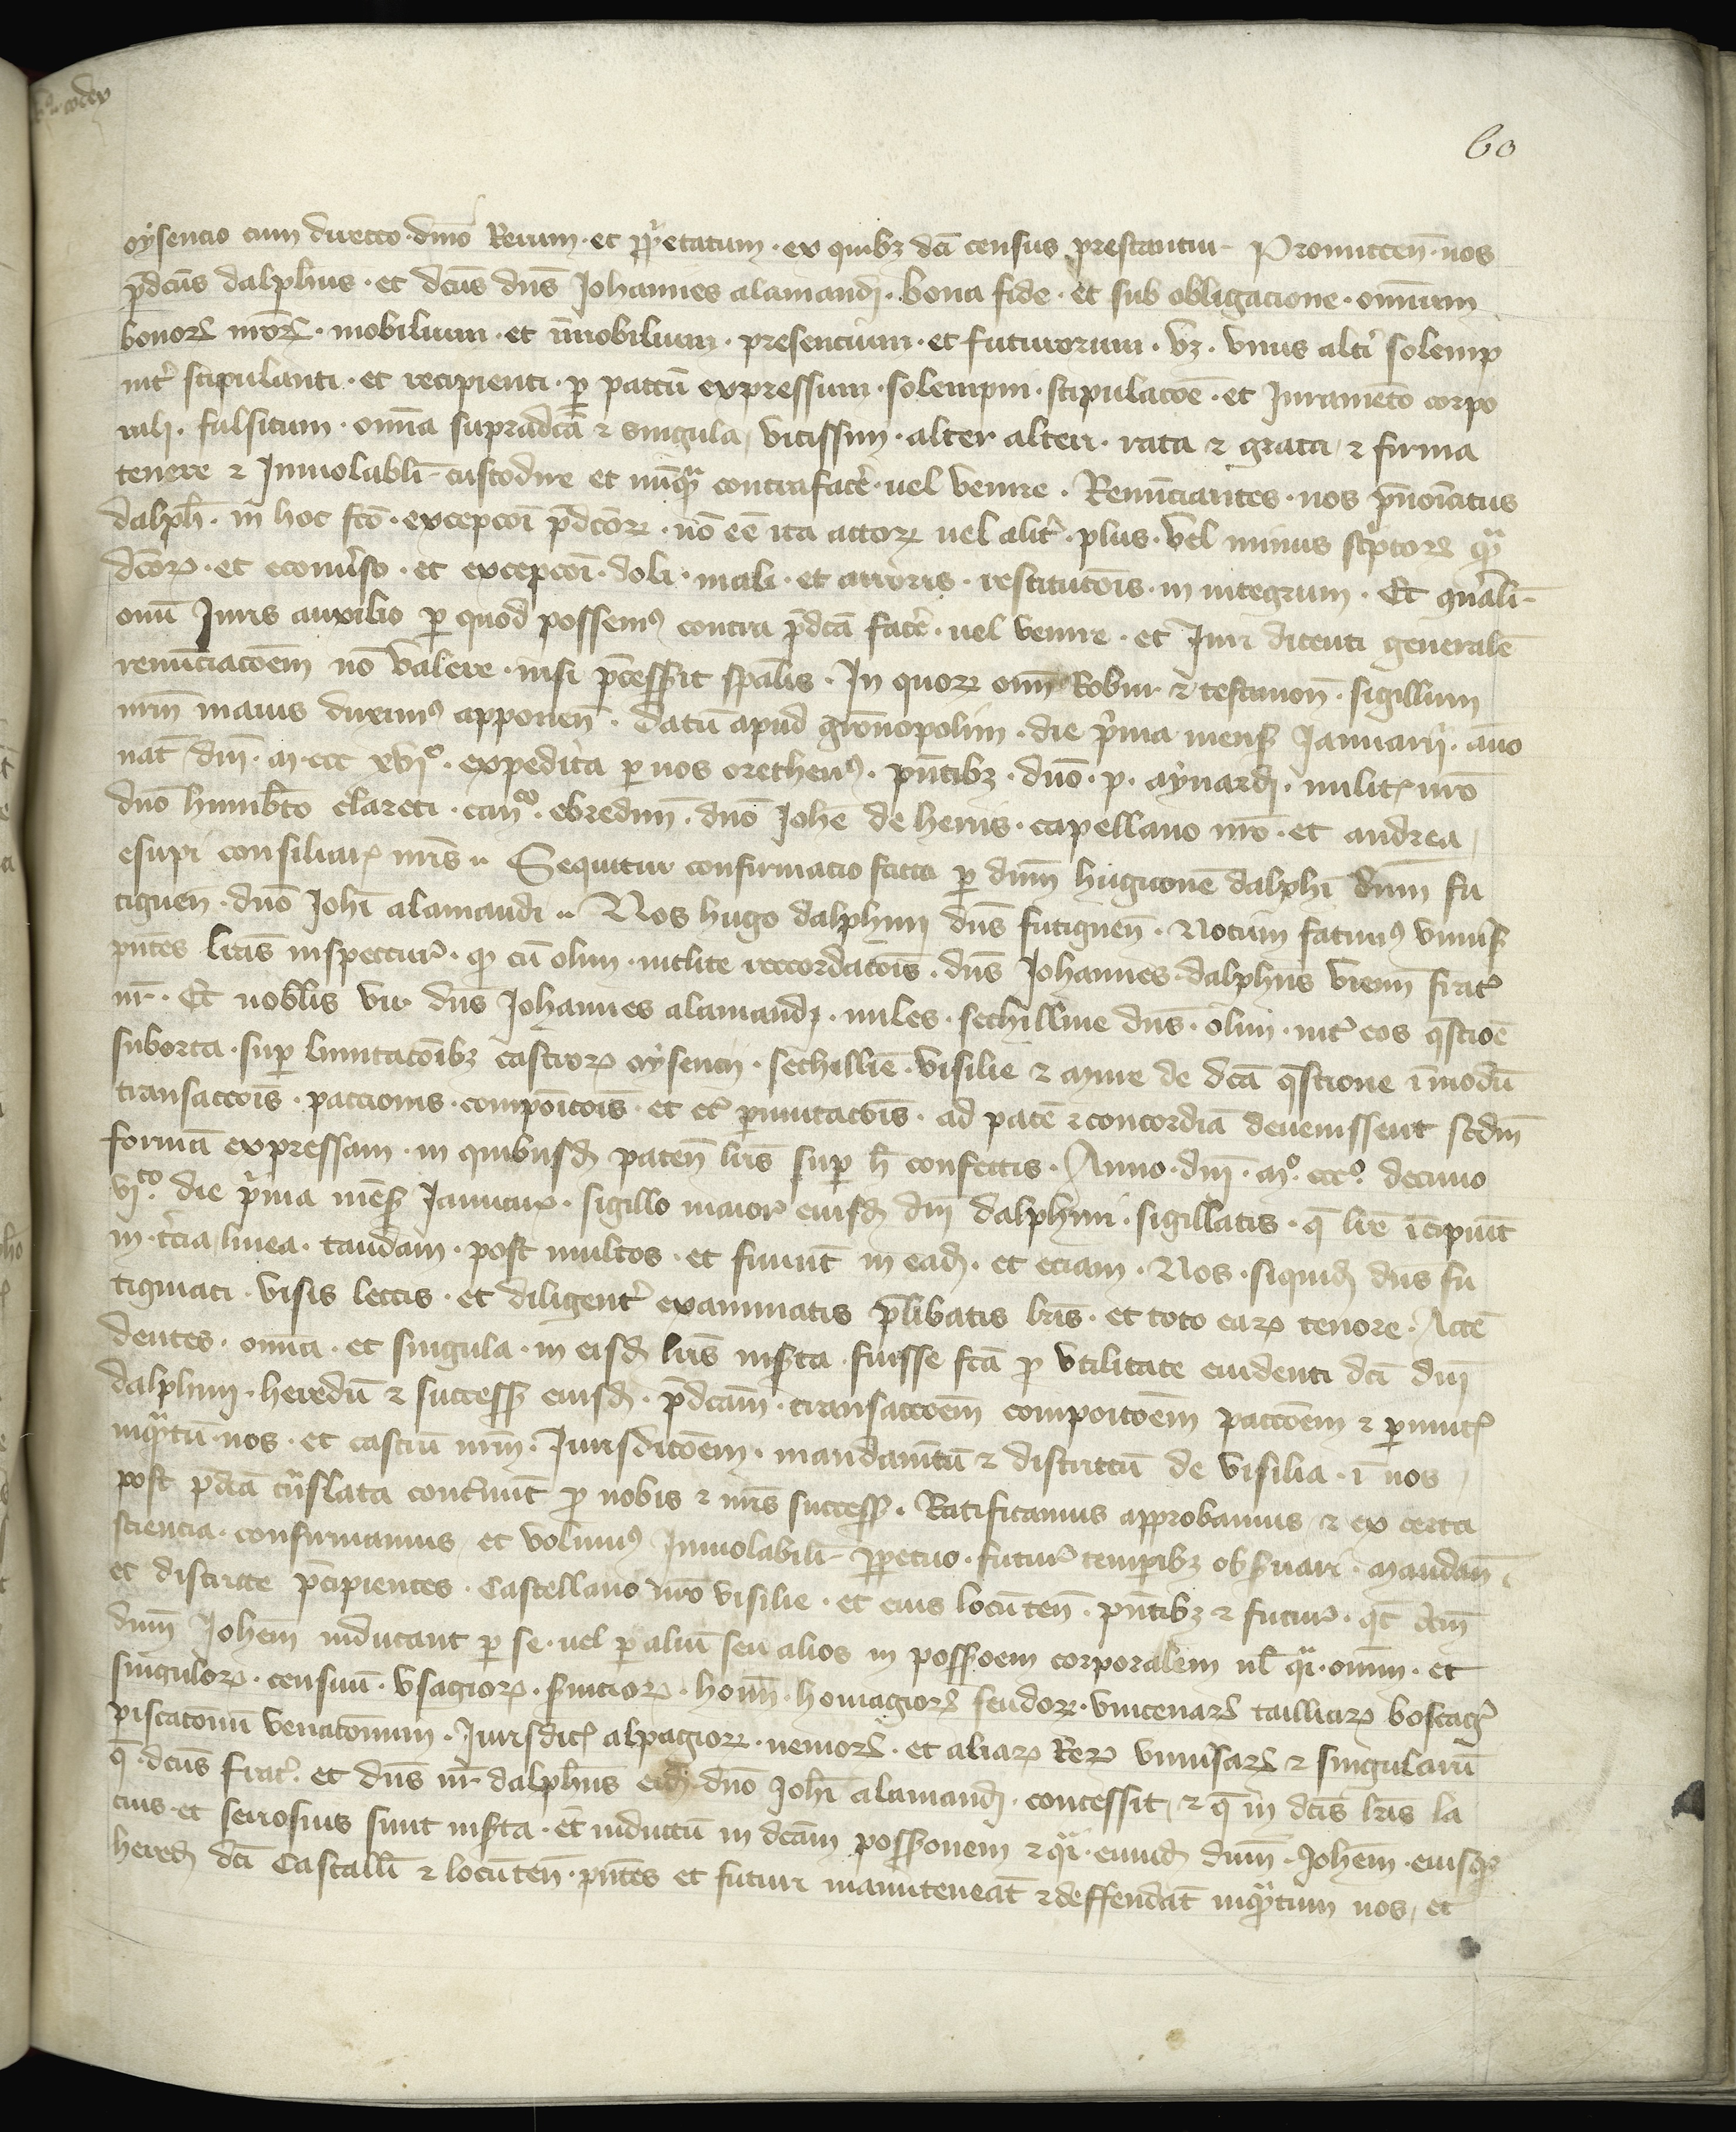 60
oysencio cum directo dn̄io Rerum et ꝓp̄etatum ex quibꝫ dc̄i census prestantur Promitten̄ nos
p̄dcūs dalphus et dcūs dn̄s Johannes alamandi bona fide et sub obligacione omnium
bonoꝝ nr̄oꝝ mobilium et īmobilium presencium et futurorum vꝫ vnus alt̄i solemp
nit̄ stipulanti et recipienti ꝑ pactū expressum solempni stipulacōe et Juramēto corpo
rali fulsitum om̄ia supradcā ⁊ singula vicissim alter alteri rata ⁊ grata ⁊ firma
tenere ⁊ Inuiolabl̄i custodire et nūqᵃ contrafac̄e uel venire Renūciantes nos p̄noīatus
dalph̄ in hoc fc̄o excepcōi p̄dcōꝝ nō eē ita actoꝝ uel alit̄ plus vel minus sc̄ptoꝝ qᵃ
dcōꝝ et econūso et excepcōi doli mali et erroris restitucōis in integrum Et gn̄ali
om̄i Juris auxilio ꝑ quod possemꝰ contra p̄dcā fac̄e uel venire et Juri dicenti generalē
renūciacōem nō valere nisi p̄cesserit sp̄alis In quoꝝ om̄ Robur ⁊ testimon̄ sigillum
nr̄m maius duximꝰ apponen̄ datū apud gr̄onopolim die p̄ma mens̄ Januarii āno
nat̄ dn̄i m ccc xvjº expedita ꝑ nos orethenꝰ pn̄tibꝫ dn̄o p aynardi milit̄ nr̄o
dn̄o humb̄to clareti canᶜᵒ ebredun̄ dn̄o Joh̄e de henis capellano nr̄o et andrea
esupi consiliar̄ nr̄is Sequitur confirmacio facta ꝑ dn̄m hugonē dalphī dn̄m fu
ciguen̄ dn̄o Joh̄i alamandi Nos hugo dalphini dn̄s fuciguen̄ Notum facimꝰ vniuers̄
pn̄tes litās inspectur̄ qꝫ cū olim inclite recordacōis dn̄s Johannes dalphūs vienn̄ frat̄
nr̄ Et nobilis vir dn̄s Johannes alamandi miles sechilline dn̄s olim int̄ eos q̄stioē
suborta suꝑ limitacōibꝫ castroꝝ oysencii sechilliē visilie ⁊ ayme de dcā q̄stione ī modū
transaccōis paccionis compoīcōis et ec̄ ꝑmutacōis ad pacē ⁊ concordiā deuenissent scdm̄
formā expressam in quibusd̄ paten̄ lr̄is suꝑ h̄ confectis Anno dn̄i mº cccº decimo
vjᵗᵒ die p̄ma mēs̄ Januar̄ sigillo maiori eiusd̄ dn̄i dalphini sigillatis q̄ lr̄e īcipiūt
in t̄cia linea taudam post multos et finiūt in ead̄ et eciam Nos siquid̄ dn̄s fu
ciguiaci visis lectis et diligent̄ examinatis p̄libatis lr̄is et toto eaꝝ tenore Actē
dentes om̄ia et singula in eisd̄ lr̄is ins̄ta fuisse fc̄ā ꝓ vtilitate euidenti dc̄i dn̄i
dalphini heredū ⁊ success̄ eiusd̄ p̄dcām transaccōem compoīcōem paccōem ⁊ ꝑmut̄
inqᵃtū nos et castrū nr̄m Jurisdicōem mandamītū ⁊ districtū de visilia ī nos
post p̄dcā tᵃnslata conc̄nūt ꝓ nobis ⁊ nr̄is success̄ Ratificamus approbamus ⁊ ex certa
sciencia confirmamus et volumꝰ Inuiolabili ꝑpetuo futur̄ tempibꝫ obs̄uari mandan̄
et districte p̄cipientes Castellano nr̄o visilie et eius locūten̄ pn̄tibꝫ ⁊ futur̄ qt̄ dc̄m
dn̄m Joh̄em inducant ꝑ se uel ꝑ aliū seu alios in possoem corporalem ul̄ qᵃi om̄m et
singuloꝝ censuū vsagioꝝ s̄uicioꝝ hoīm homagioꝝ feudoꝝ vintenaꝝ talliaꝝ boscaḡ
piscacōnū venacōnum Jurisdic̄ alpagioꝝ nemoꝝ et aliaꝝ Reꝝ vniūsaꝝ ⁊ singulariū
q̄ dcūs frat̄ et dn̄s nr̄ dalphūs eid̄ dn̄o Joh̄i alamandi concessit ⁊ q̄ in dcīs lr̄is la
cius et seriosius sunt ins̄ta et inductū in dcām poss̄sionem ⁊ qᵃi eiund̄ dn̄m Joh̄em eiusqꝫ
hered̄ dc̄i Castallī ⁊ locūten̄ pn̄tes et futuri manuteneāt ⁊ deffendāt inqᵃtum nos et